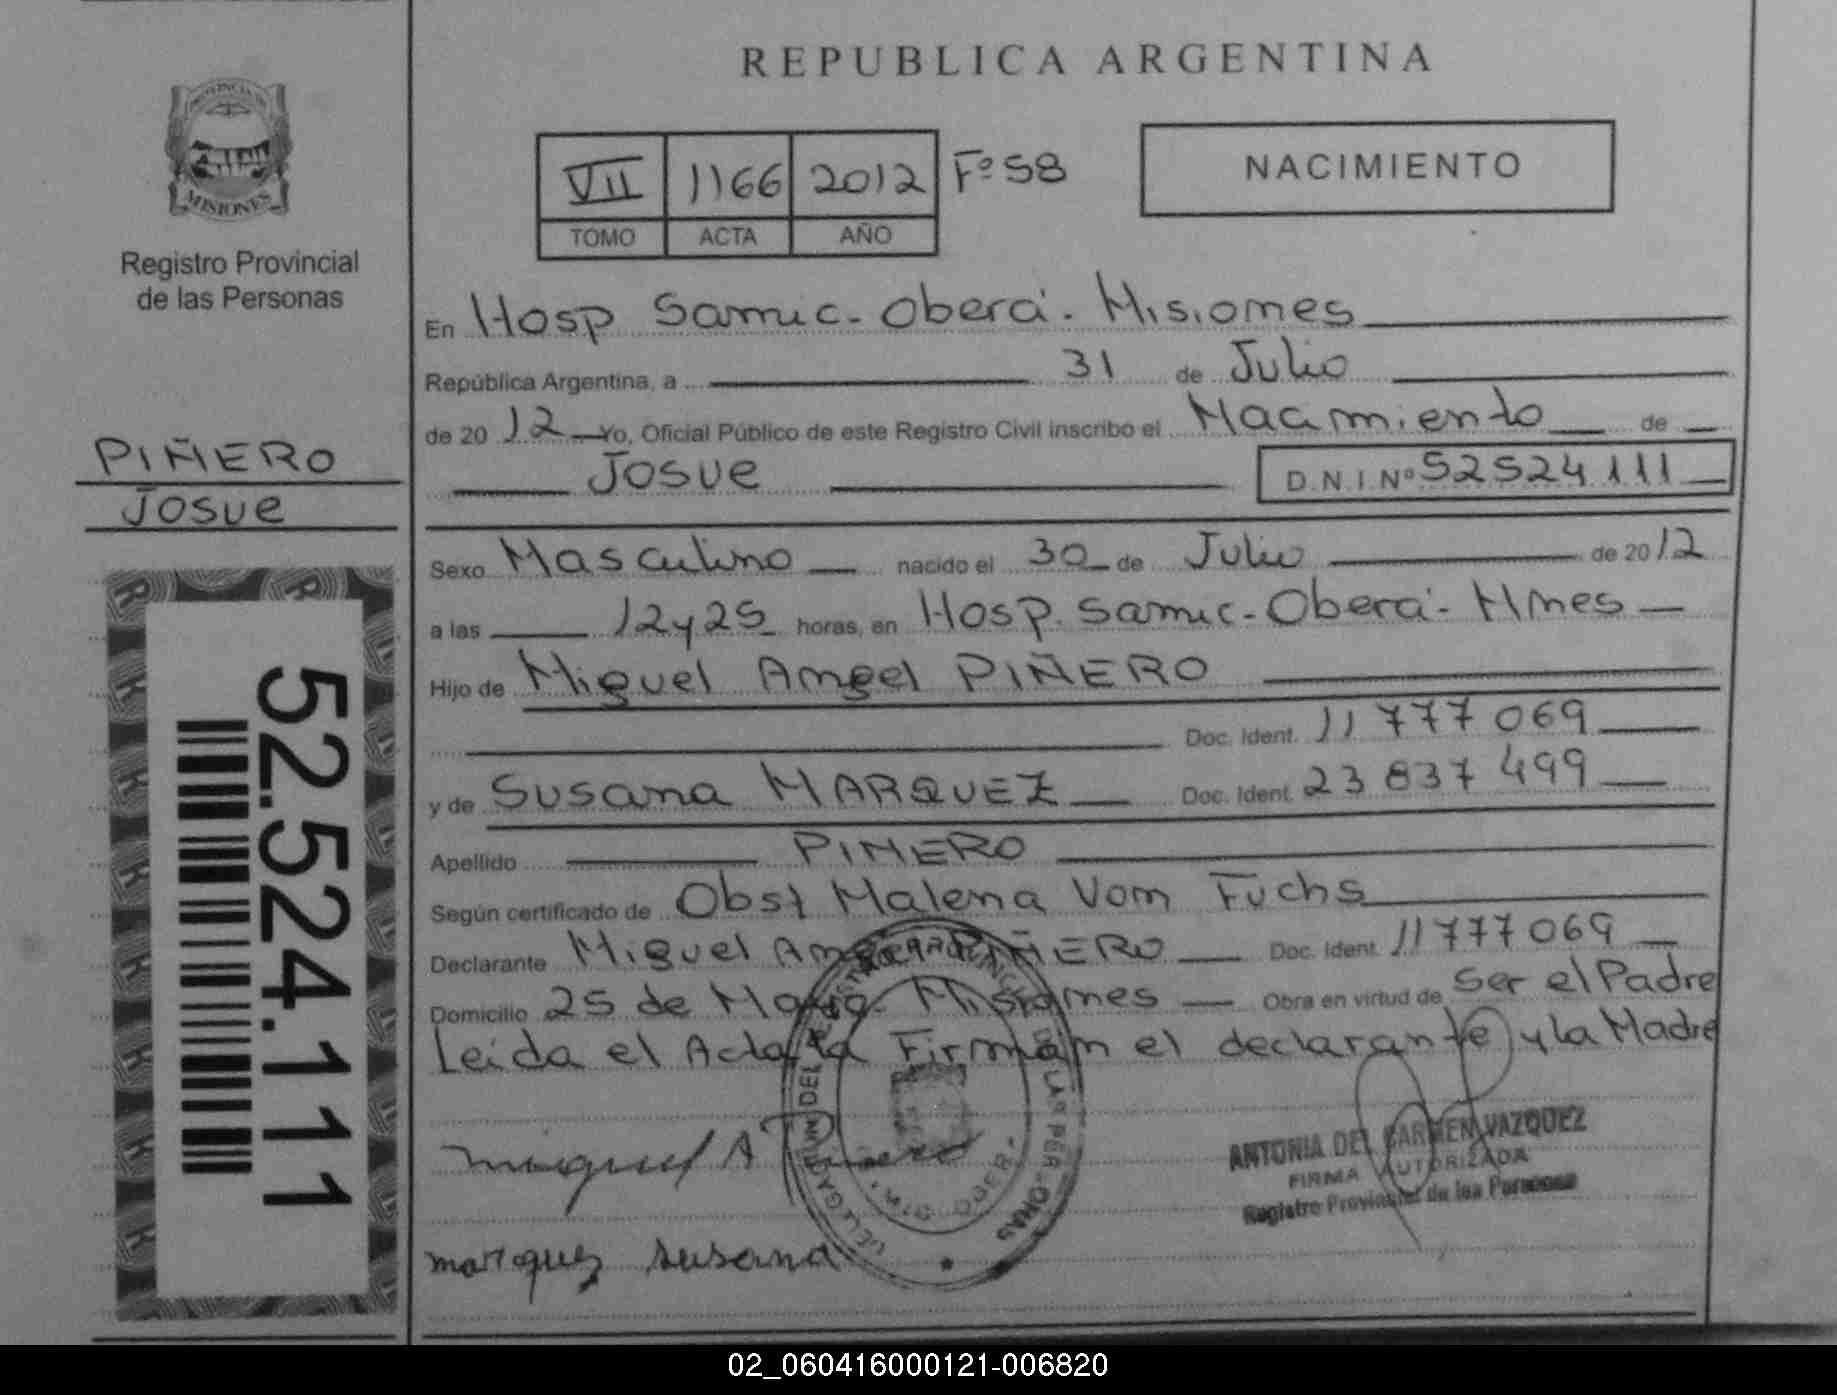 REPUBLICA ARGENTINA
PROVINCIA DE
MISIONES
Registro Provincial
de las Personas
VII 1166 2012 Fº 58
TOMO ACTA AÑO
NACIMIENTO
En Hosp Samic - Oberá - Misiones
República Argentina, a 31 de Julio
de 2012 Yo, Oficial Público de este Registro Civil inscribo el Nacimiento de
Josue D.N.I. Nº 52524111
PIÑERO
Josue
Sexo Masculino nacido el 30 de Julio de 2012
a las 12 y 25 horas, en Hosp. Samic - Oberá - Mnes
Hijo de Miguel Angel PIÑERO
Doc. Ident. 11 777 069
y de Susana MARQUEZ Doc. Ident. 23 837 499
Apellido PIÑERO
Según certificado de Obst Malena Von Fuchs
Declarante Miguel Angel PIÑERO Doc. Ident. 11777069
Domicilio 25 de Mayo - Misiones Obra en virtud de Ser el Padre
Leida el Acta la Firman el declarante y la Madre
miguel A Piñero
marquez susana
ANTONIA DEL CARMEN VAZQUEZ
FIRMA AUTORIZADA
Registro Provincial de las Personas
52.524.111
02_060416000121-006820